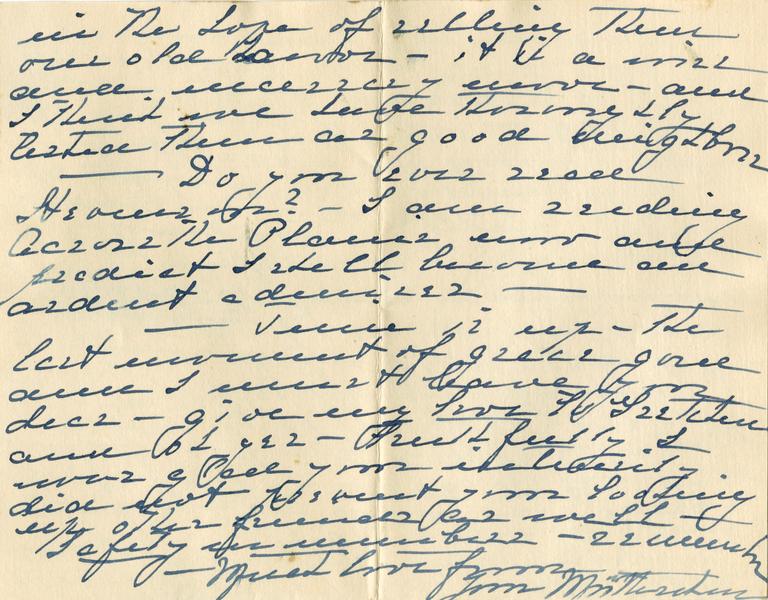 in the hope of selling them
our old manor - it is a wise
and necessary move - and
I think we have thoroughly
tested them as good neighbors
— Do you ever read
Hemingway? - I am reading
Across the now and
predict I shall become an
ardent admirer —
— Time is up - the
last moment of grace gone
and I must leave you
dear - give my love to Gretchen
and - Truthfully I
was glad your
did not prevent your looking
up other friends as well -
Safety in numbers - remember
- Much love from
your